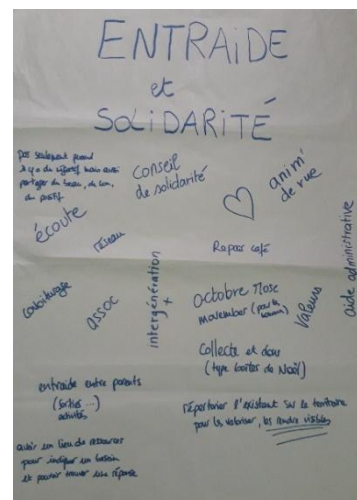 ENTRAIDE
et
SOLIDARITÉ
pas seulement quand
il y a du négatif mais aussi
partager du beau, du bon,
du positif.
Conseil
de solidarité
anim'
de rue
écoute
réseau
Repas café
aide administrative
covoiturage
assoc
intergénération
+
octobre rose
movember (pour les hommes)
Valeurs
Collecte et dons
(type boîtes de Noël)
entraide entre parents
(sorties ...)
activités
répertorier l'existant sur le territoire
pour les valoriser, les rendre visibles
avoir un lieu de ressources
pour indiquer un besoin
et pouvoir trouver une réponse